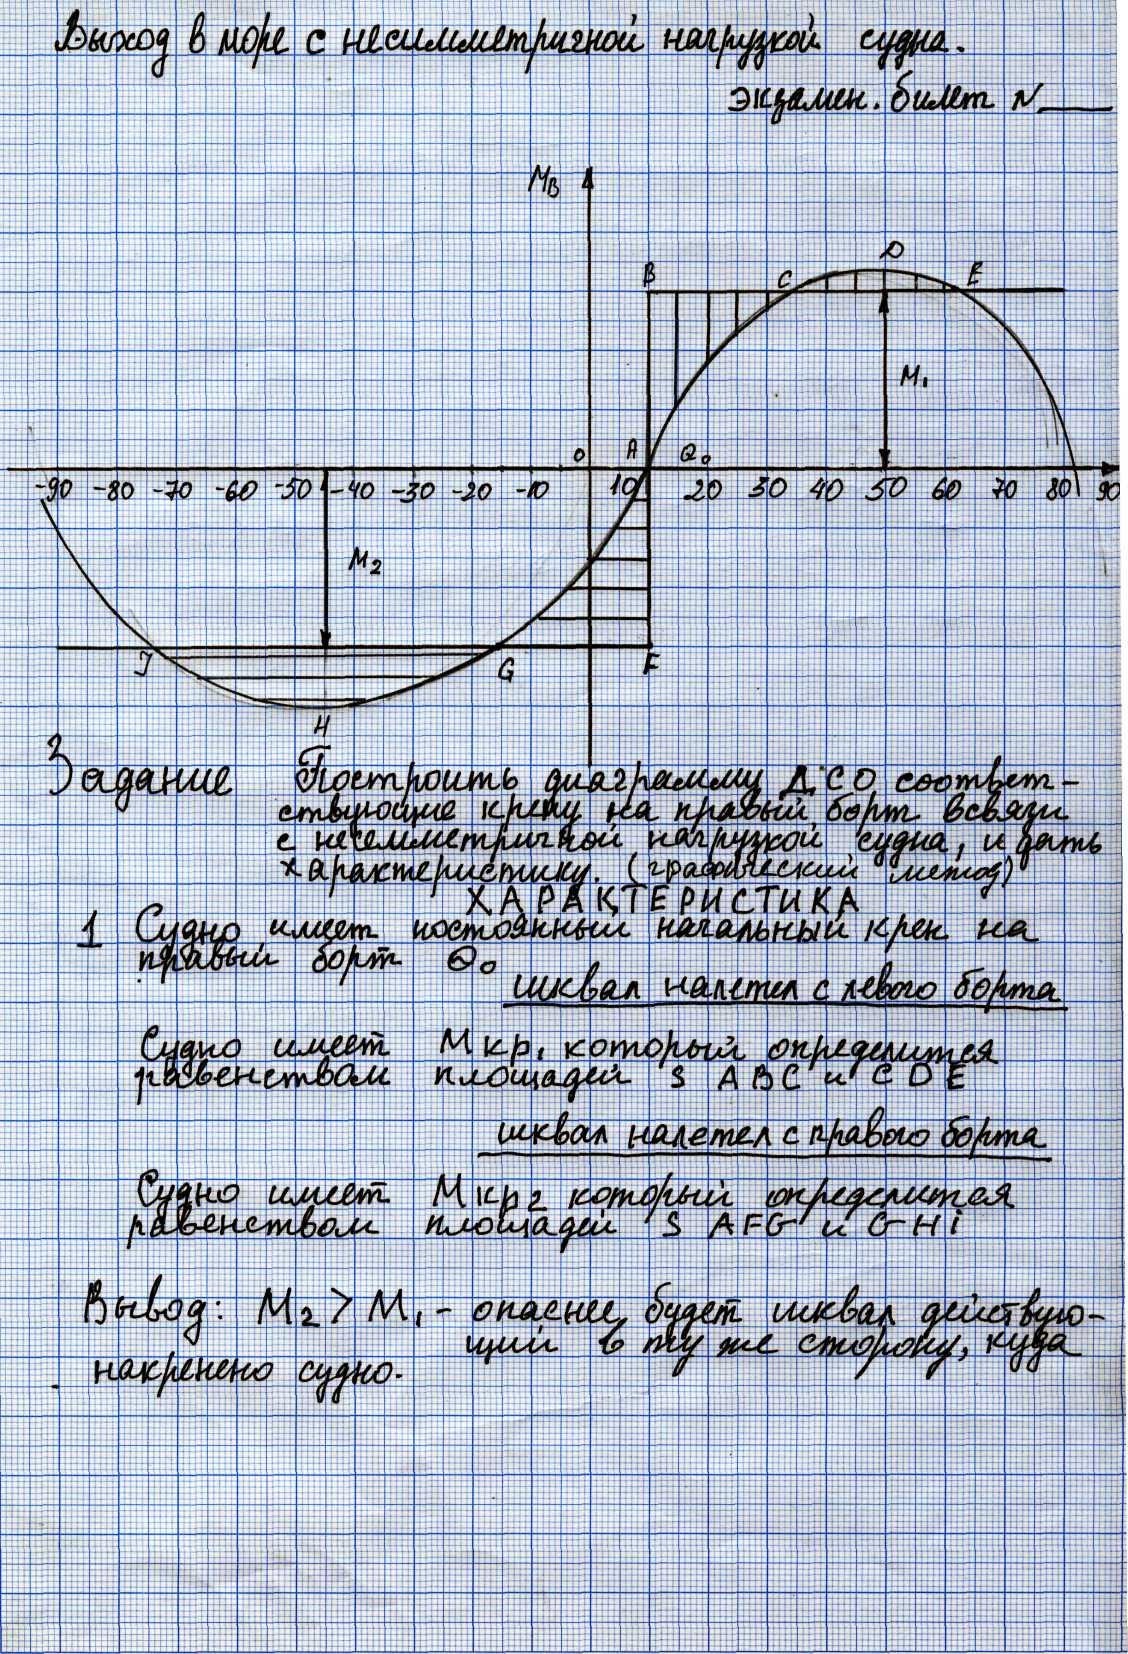 Выход в море с несимметричной нагрузкой судна.
экзамен. билет N
Mв
B
C
D
E
M₁
0
A
Θ₀
-90 -80 -70 -60 -50 -40 -30 -20 -10 10 20 30 40 50 60 70 80 90
M₂
J
G
F
H
Задание Построить диаграмму ДСО соответ-
ствующие крену на правый борт всвязи
с несемметричной нагрузкой судна, и дать
характеристику. (графический метод)
ХАРАКТЕРИСТИКА
1 Судно имеет постоянный начальный крен на
правый борт Θ₀
шквал налетел с левого борта
Судно имеет Mкр₁ который определится
равенством площадей S ABC и CDE
шквал налетел с правого борта
Судно имеет Mкр₂ который определится
равенством площадей S AFG и GHi
Вывод: M₂ > M₁ - опаснее будет шквал действую-
щий в ту же сторону, куда
накренено судно.